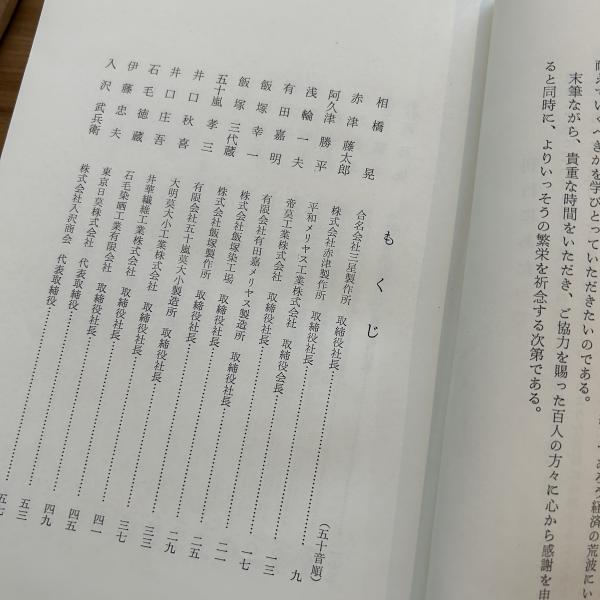 あろう経済の荒波にい
耐えていくべきかを学びとっていただきたいのである。
末筆ながら、貴重な時間をいただき、ご協力を賜った百人の方々に心から感謝を申
ると同時に、よりいっそうの繁栄を祈念する次第である。
もくじ
(五十音順)
相橋 晃 合名会社三星製作所 取締役社長……九
赤津 藤太郎 株式会社赤津製作所 取締役社長……一三
阿久津 勝平 平和メリヤス工業株式会社 取締役社長……一七
浅輪 一夫 帝莫工業株式会社 取締役会長……二一
有田 嘉明 有限会社有田嘉メリヤス製造所 取締役社長……二五
飯塚 幸一 株式会社飯塚染工場 取締役社長……二九
飯塚 三代蔵 株式会社飯塚製作所 取締役社長……三三
五十嵐 孝三 有限会社五十嵐莫大小製造所 取締役社長……三七
井口 秋喜 大明莫大小工業株式会社 取締役社長……四一
井口 庄吾 井華繊維工業株式会社 取締役社長……四五
石毛 徳蔵 石毛染晒工業有限会社 取締役社長……四九
伊藤 忠夫 東京日莫株式会社 代表取締役……五三
入沢 武兵衛 株式会社入沢商会 代表取締役……五七